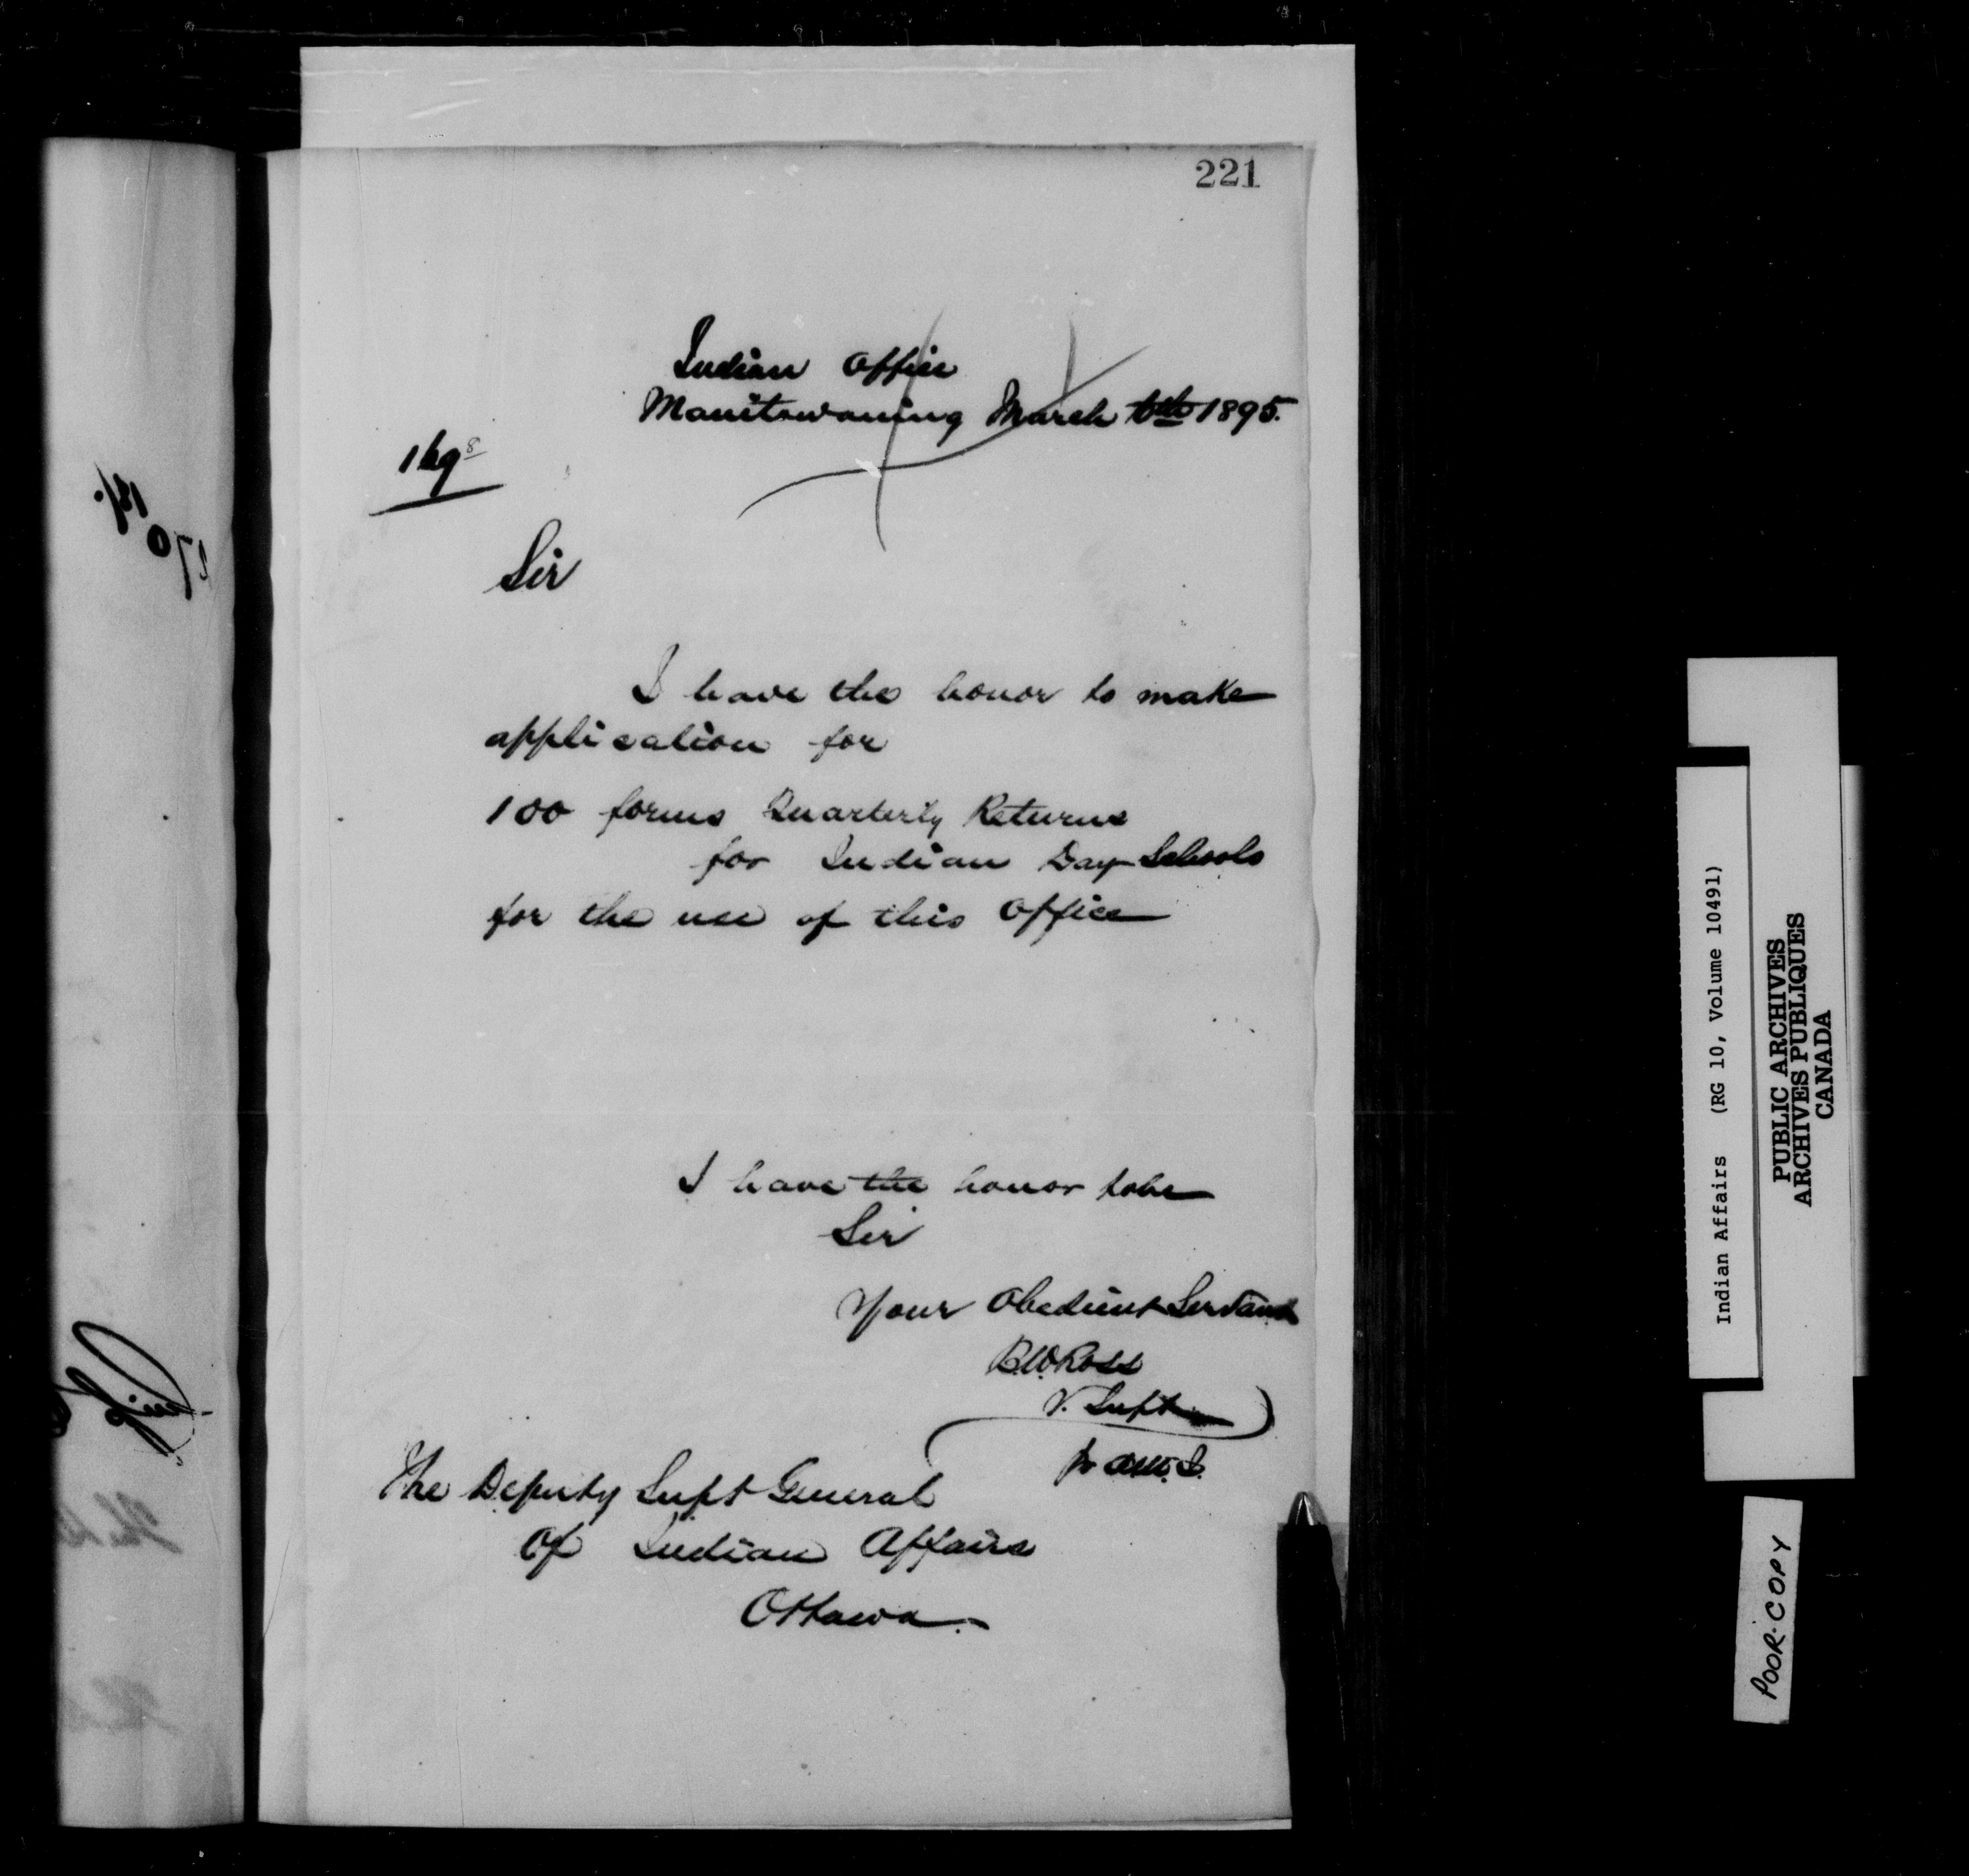 221
Indian Office
Manitowaning March 6th 1895.
169 8
Sir
I have the honor to make
application for
100 forms Quarterly Returns
for Indian Day Schools
for the use of this Office
I have the honor to be
Sir
Your Obedient Servant
B.W. Ross
V. Supt
The Deputy Supt General
Of Indian Affairs
Ottawa.
Indian Affairs (RG 10, Volume 10491)
PUBLIC ARCHIVES
ARCHIVES PUBLIQUES
CANADA
POOR COPY